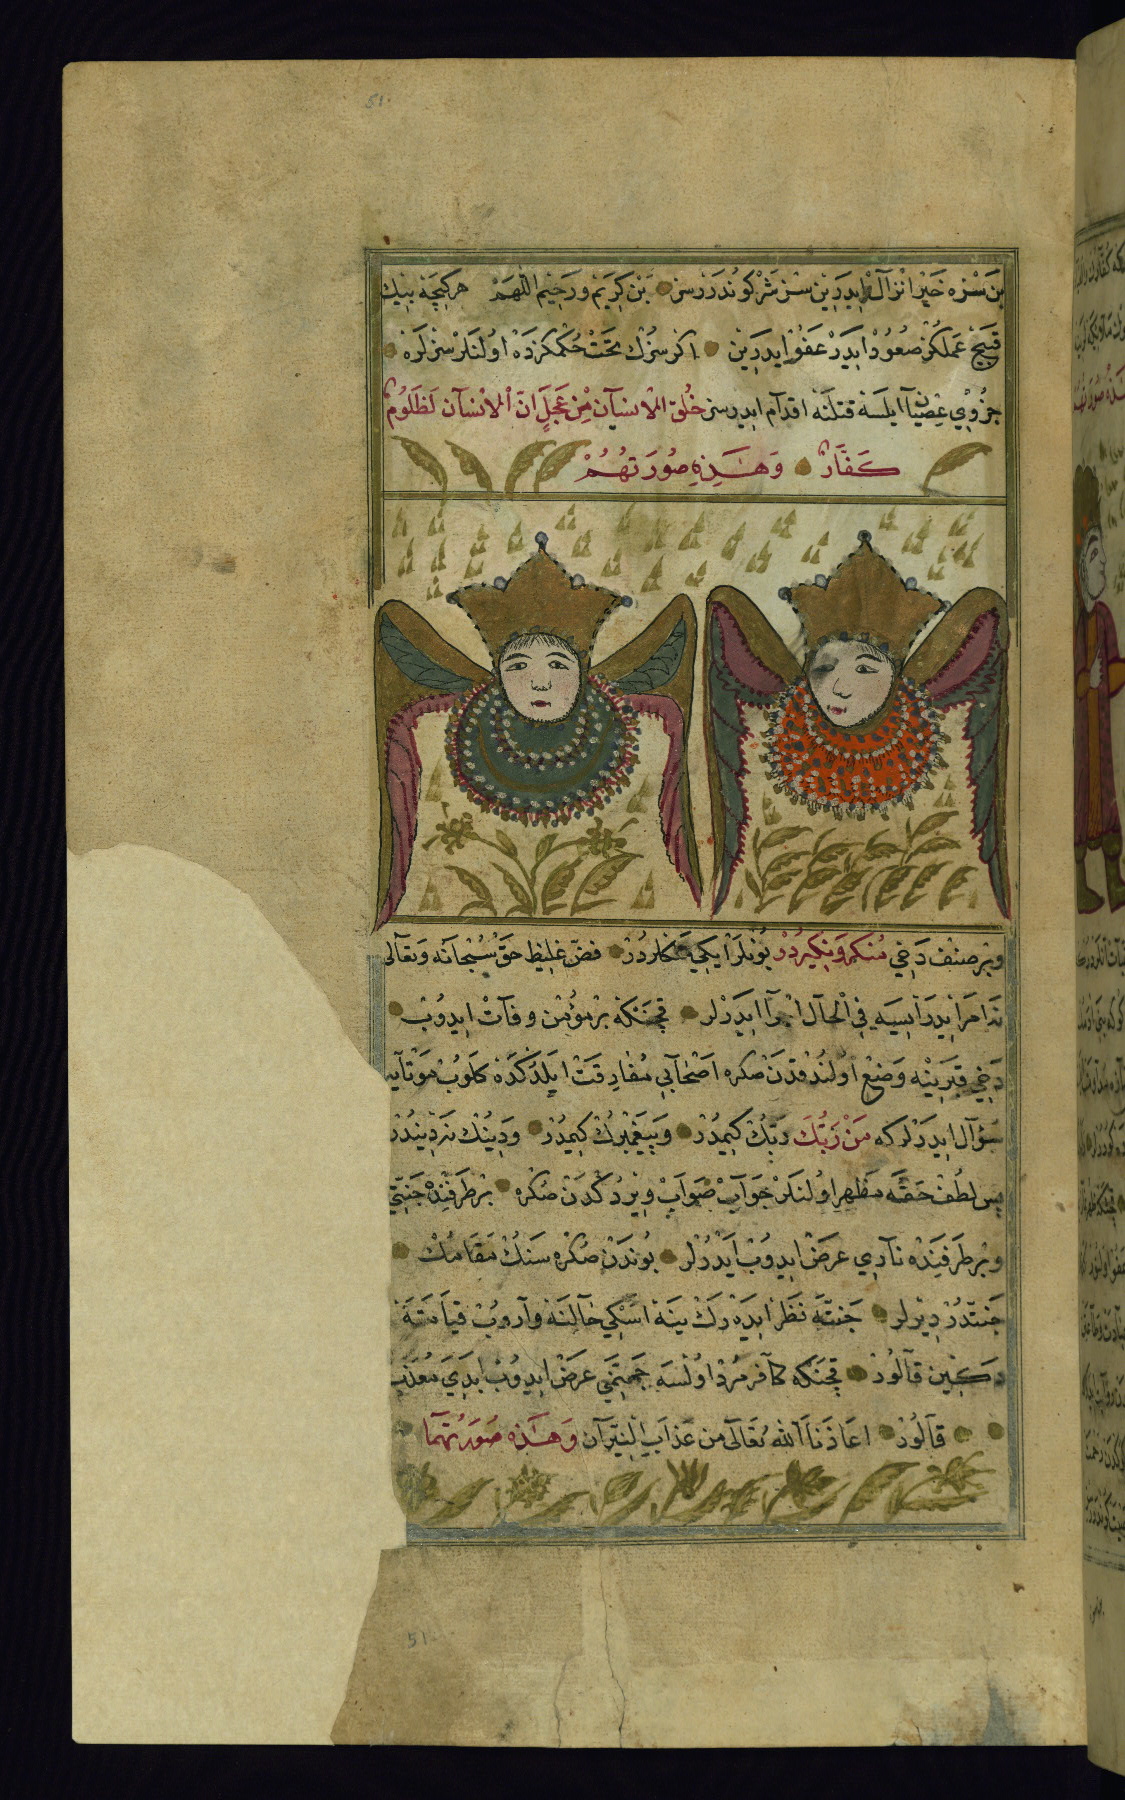 51.
بن سزه خير انزال ايدرين سز شر كوندررسز بن كريم و رحيم اللهم هر كيجه بنيك
قبيح عملكز صعود ايدر عفو ايدرين اكر سزك تحت حكمكزده اولنلر سزلره
جزوي عصيان ايلسه قتلنه اقدام ايدرسز خلق الانسان من عجل ان الانسان لظلوم
كفار وهذه صورتهم
وبر صنف دخي منكر ونكيردر بونلر ايكي ملكلردر فض غليظ حق سبحانه وتعالى
نه امر ايدر ايسه في الحال اجرا ايدرلر قچنكه بر مؤمن وفات ايدوب
دخي قبرينه وضع اولندقدن صكره اصحابي مفارقت ايلدكده كلوب موتايه
سؤال ايدرلر كه من ربك ربك كيمدر وپيغمبرك كيمدر ودينك نه ديندر
پس لطف حقه مظهر اولنلر جواب صواب ويردكدن صكره بر طرفنده جنتي
وبر طرفنده نار ي عرض ايدوب ايدرلر بوندن صكره سنك مقامك
جنتدر ديرلر جنته نظر ايدەرك ينه اسكي حالنه واروب قيامته
دكين قالور قچنكه كافر مرد اولسه جهنمي عرض ايدوب ابدي معذب
قالور اعاذنا الله تعالى من عذاب النيران وهذه صورتهما
51